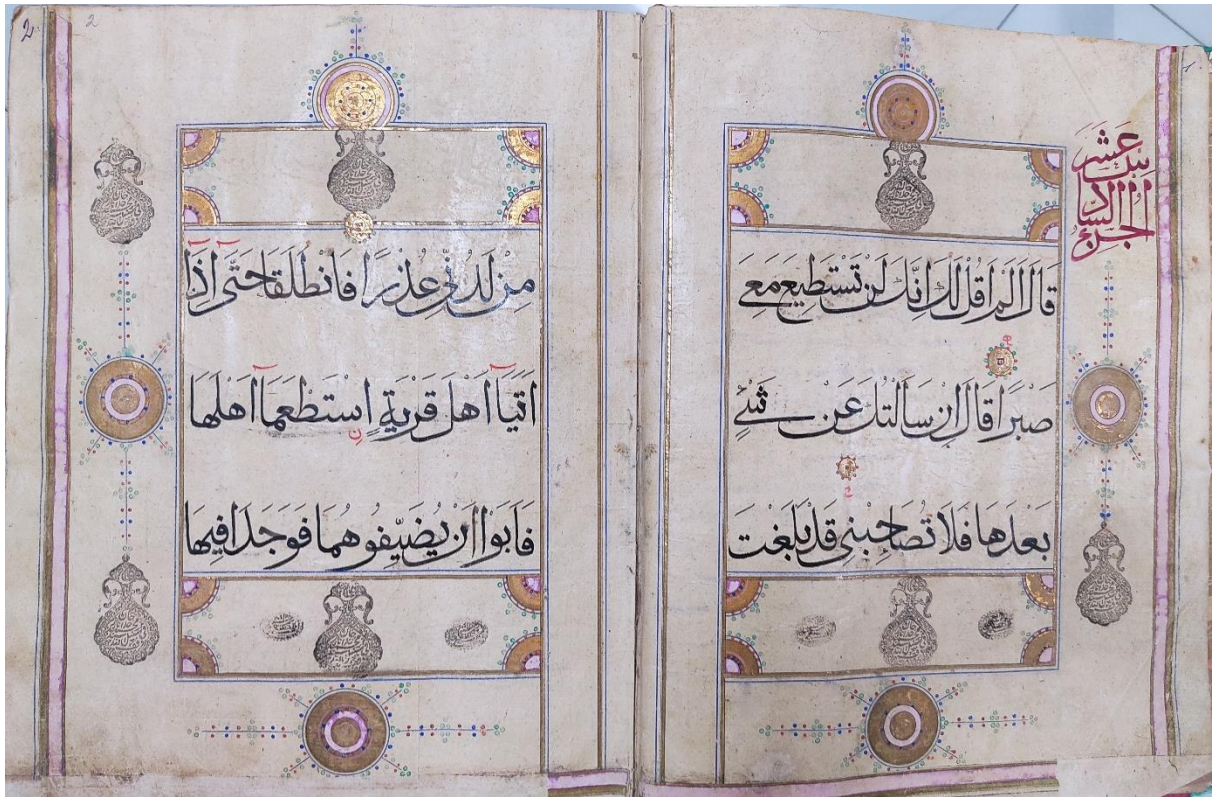 الجزء السادس عشر
قَالَ اَلَمْ اَقُلْ لَكَ اِنَّكَ لَنْ تَسْتَطِيعَ مَعِىَ
صَبْرًا قَالَ اِنْ سَاَلْتُكَ عَنْ شَىْءٍ
بَعْدَهَا فَلَا تُصَاحِبْنِى قَدْ بَلَغْتَ
2
2
مِنْ لَدُنِّى عُذْرًا فَانْطَلَقَا حَتَّى اِذَٓا
اَتَيَٓا اَهْلَ قَرْيَةٍ اسْتَطْعَمَٓا اَهْلَهَا
فَاَبَوْا اَنْ يُضَيِّفُوهُمَا فَوَجَدَا فِيهَا